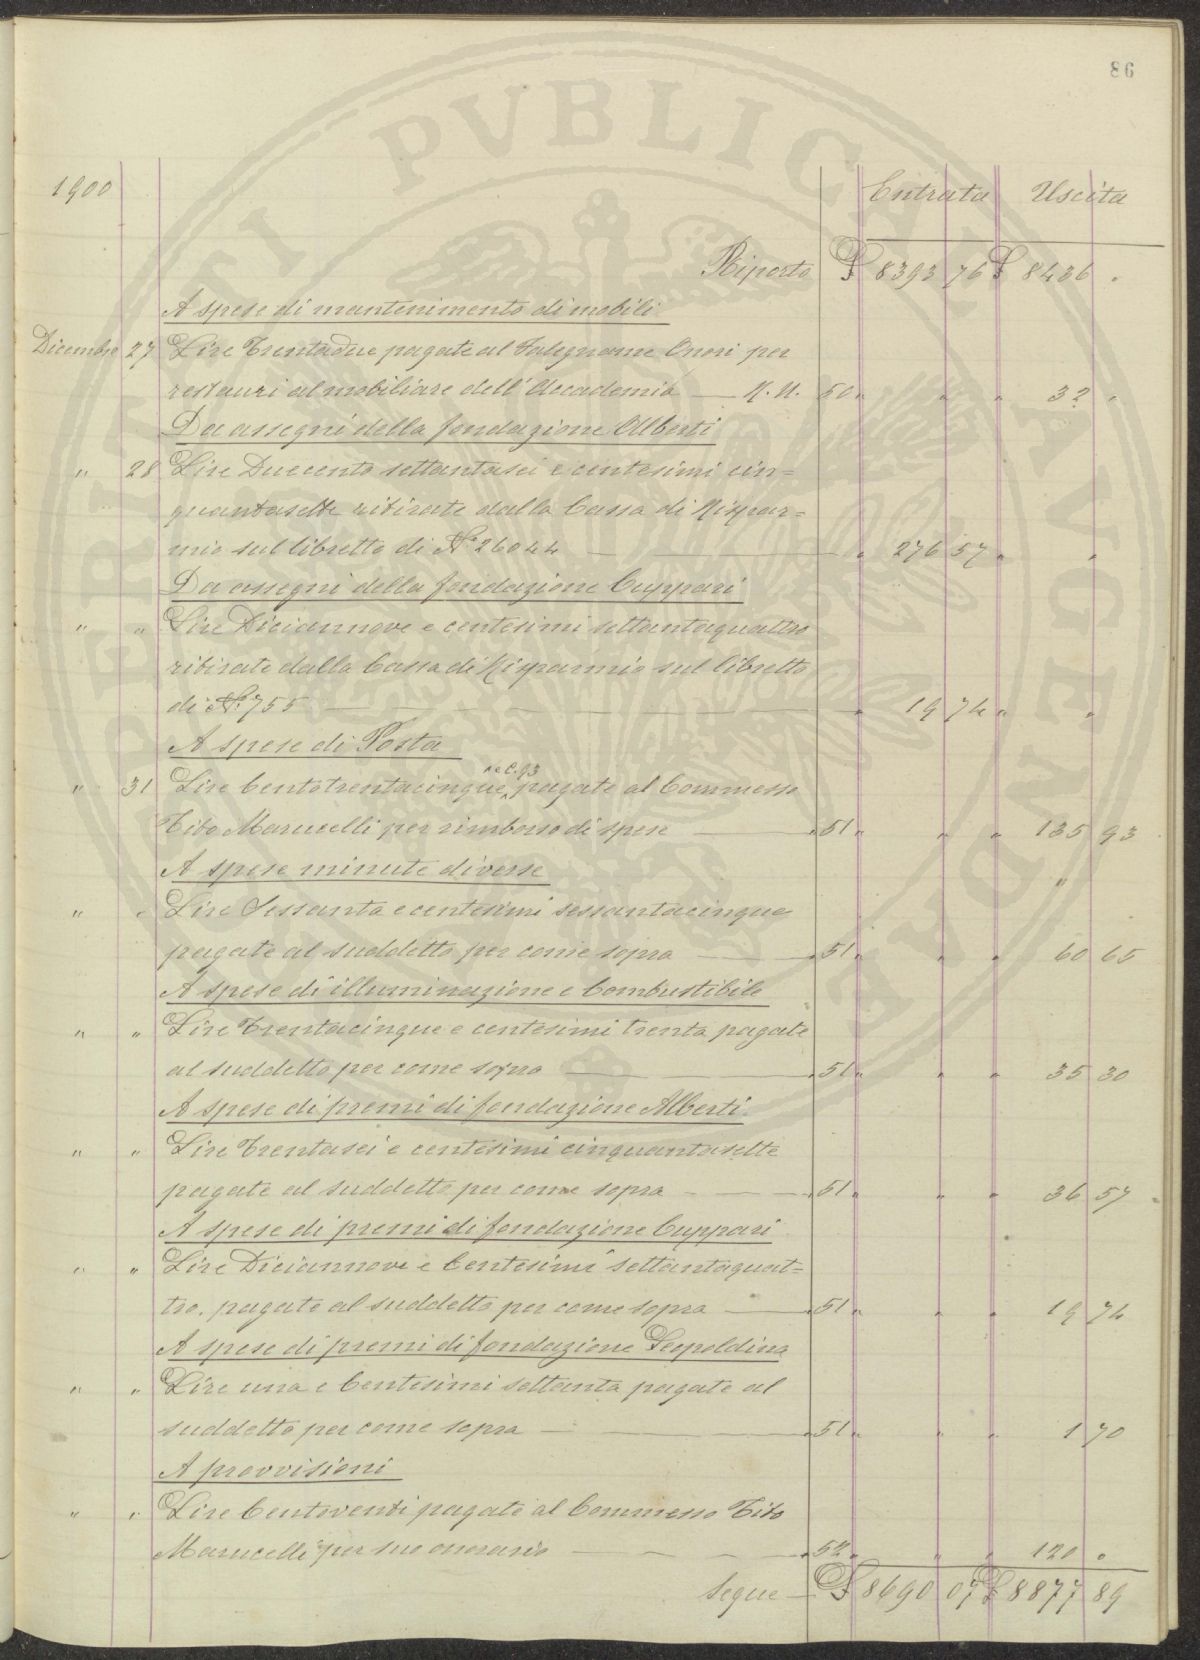 86
1900 Entrata Uscita
Riporto £ 8393 76 £ 8436 "
A spese di mantenimento di mobili
Dicembre 27 Lire Trentadue pagate al Falegname Onori per
restauri al mobiliare dell'Accademia — N. U. 50 " " " 32 "
Da assegni della fondazione Alberti
" 28 Lire Duecento settantasei e centesimi cin=
quantasette ritirate dalla Cassa di Rispar=
mio sul libretto di N.° 26044 — " 276 57 " "
Da assegni della fondazione Cuppari
" " Lire Diciannove e centesimi settantaquattro
ritirate dalla Cassa di Risparmio sul libretto
di N.° 755 — " 19 74 " "
A spese di Posta
" 31 Lire Centotrentacinque e C. 93 pagate al Commesso
Tito Marucelli per rimborso di spese — " 51 " " " 135 93
A spese minute diverse "
" " Lire Sessanta e centesimi sessantacinque
pagate al suddetto per come sopra — " 51 " " " 60 65
A spese di illuminazione e Combustibile
" " Lire Trentacinque e centesimi trenta pagate
al suddetto per come sopra — " 51 " " " 35 30
A spese di premi di fondazione Alberti
" " Lire Trentasei e centesimi cinquantasette
pagate al suddetto per come sopra — " 51 " " " 36 57
A spese di premi di fondazione Cuppari
" " Lire Diciannove e Centesimi settantaquat=
tro. pagate al suddetto per come sopra — " 51 " " " 19 74
A spese di premi di fondazione Leopoldina
" " Lire una e Centesimi settanta pagate al
suddetto per come sopra — " 51 " " " 1 70
A provvisioni
" " Lire Centoventi pagate al Commesso Tito
Marucelli per suo onorario — " 52 " " " 120 "
Segue — £ 8690 07 £ 8877 89